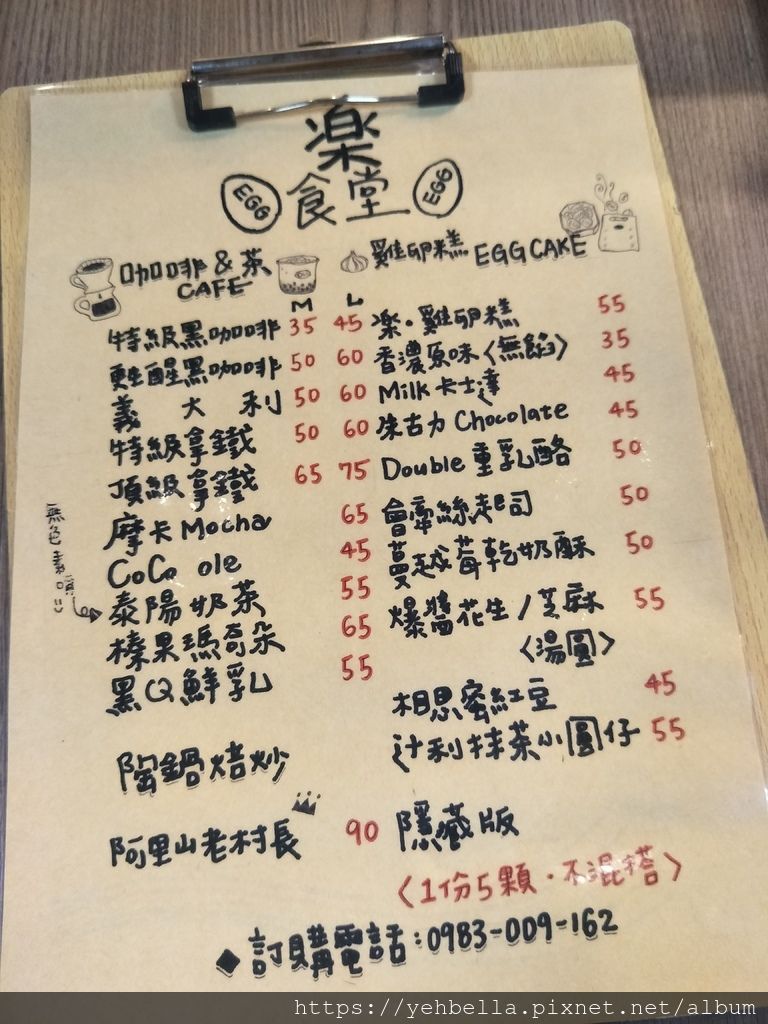 楽
EGG 食堂 EGG
咖啡&茶
CAFE
M L
特級黑咖啡 35 45
甦醒黑咖啡 50 60
義大利 50 60
特級拿鐵 50 60
頂級拿鐵 65 75
摩卡Mocha 65
CoCo ole 45
無色素唷
泰陽奶茶 55
榛果瑪奇朵 65
黑Q鮮乳 55
陶鍋焙炒
阿里山老村長 90
雞卵糕 EGG CAKE
楽·雞卵糕 55
香濃原味〈無餡〉 35
Milk卡士達 45
朱古力Chocolate 45
Double重乳酪 50
會牽絲起司 50
蔓越莓乾奶酥 50
爆醬花生/芝麻 55
〈湯圓〉
相思蜜紅豆 45
辻利抹茶小圓仔 55
隱藏版
〈1份5顆·不混搭〉
◆訂購電話:0983-009-162
https://yehbella.pixnet.net/album